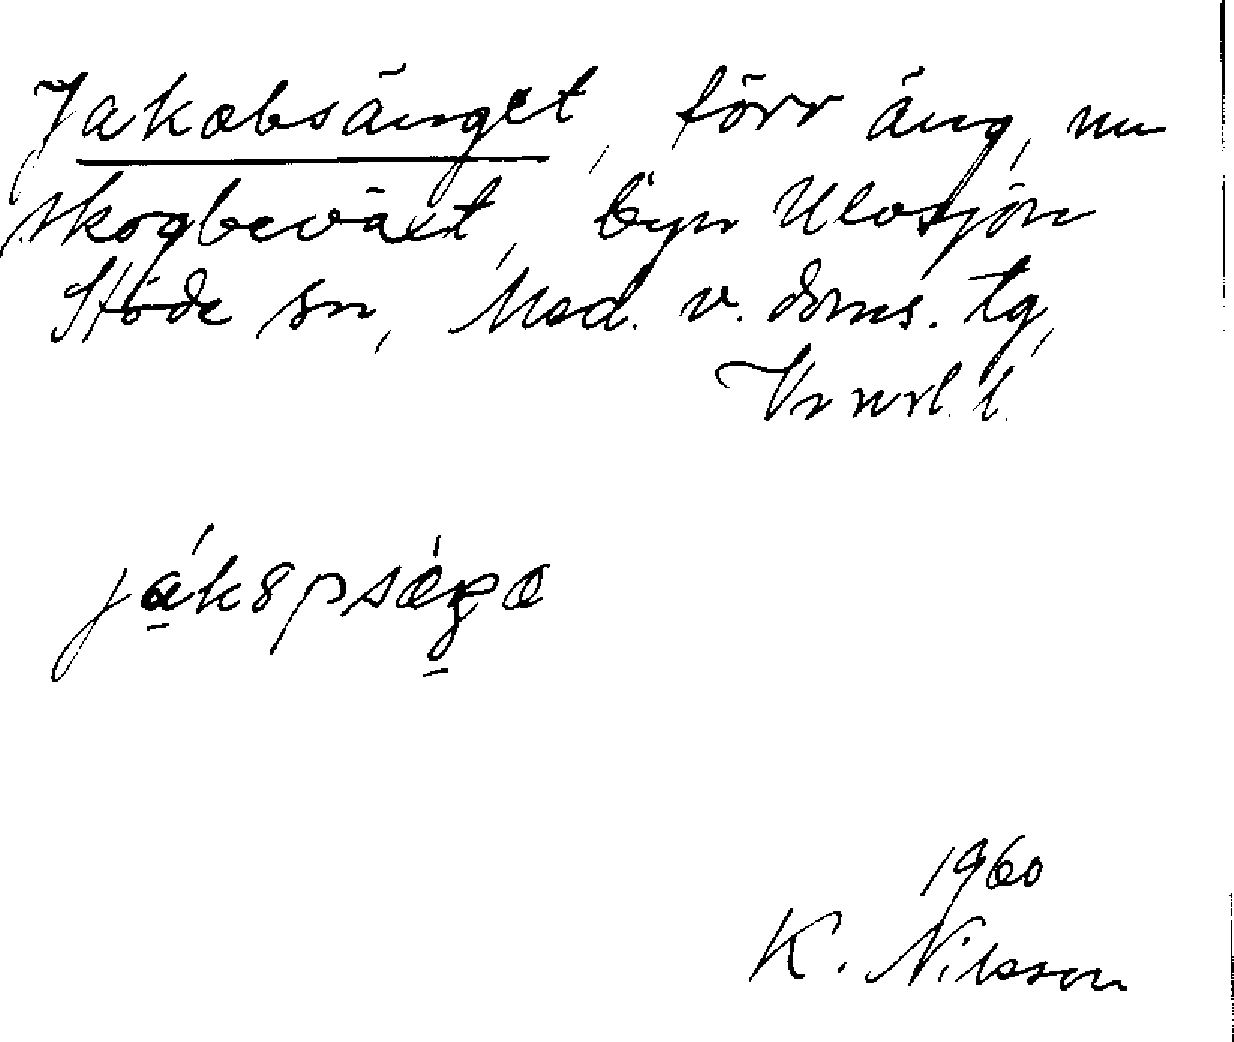 Jakobsänget, förr äng, nu
skogbeväxt, byn Ulvsjön
Stöde sn, Med. v. doms. tg,
Vnrl. l.
jákspsæŋæ
1960
K. Nilsson